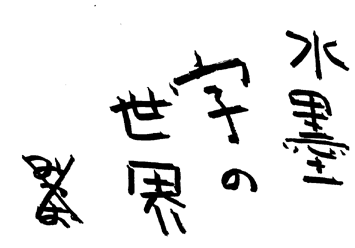 水墨
字の
世界